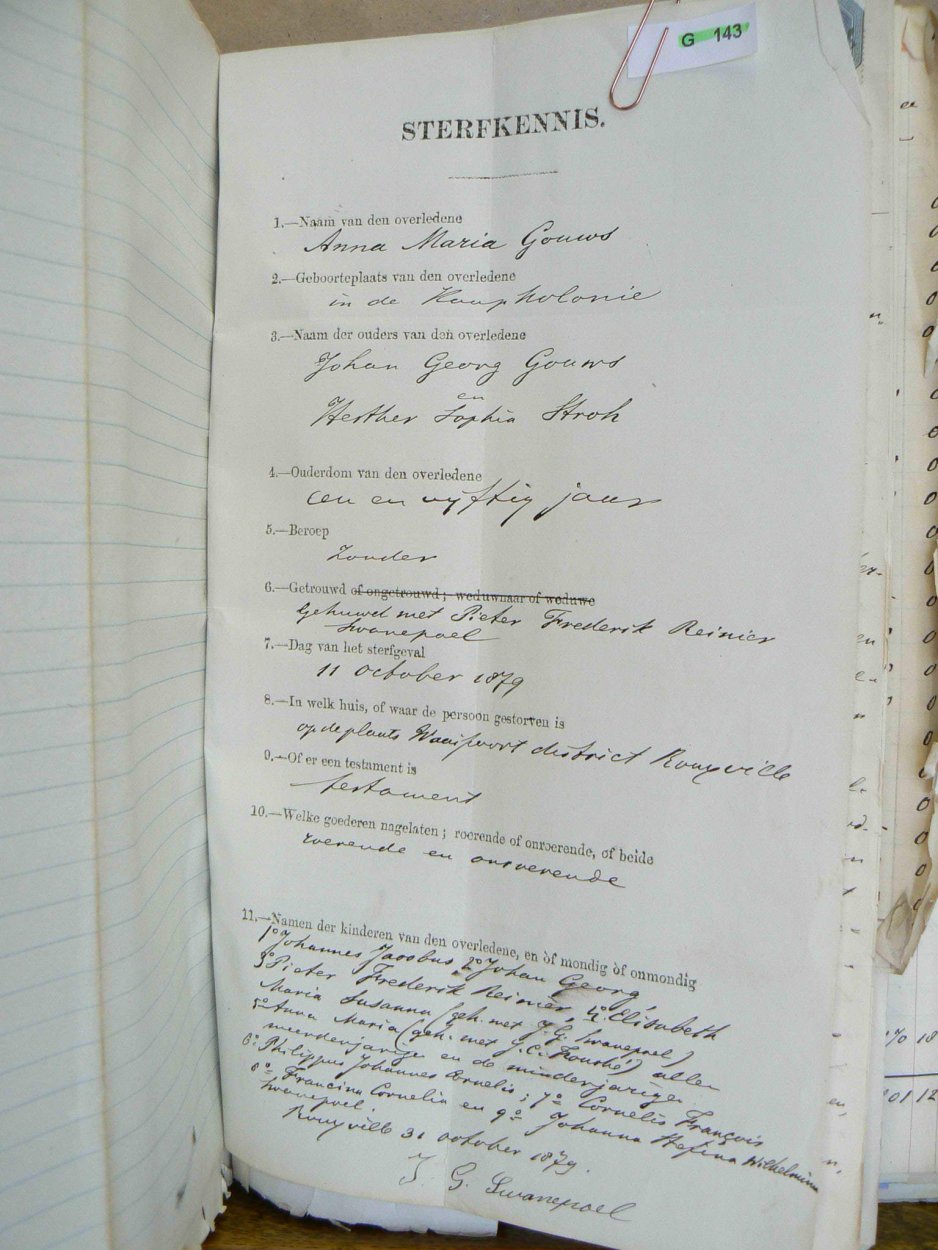 G 143
STERFKENNIS.
1.—Naam van den overledene
Anna Maria Gouws
2.—Geboorteplaats van den overledene
in de Kaapkolonie
3.—Naam der ouders van den overledene
Johan Georg Gouws
en
Hesther Sophia Stroh
4.—Ouderdom van den overledene
een en vyftig jaar
5.—Beroep
Zonder
6.—Getrouwd of ongetrouwd; weduwnaar of weduwe
Gehuwd met Pieter Frederik Reinier
Swanepoel
7.—Dag van het sterfgeval
11 October 1879
8.—In welk huis, of waar de persoon gestorven is
op de plaats Waaipoort district Rouxville
9.—Of er een testament is
testament
10.—Welke goederen nagelaten; roerende of onroerende, of beide
roerende en onroerende
11.—Namen der kinderen van den overledene, en òf mondig òf onmondig
1º Johannes Jacobus 2º Johan Georg,
3º Pieter Frederik Reinier, 4º. Elisabeth
Maria Susanna (geh. met J. G. Swanepoel)
5º Anna Maria (geh. met J. C. ) allen
meerderjarige en de minderjarige
6º Philippus Johannes Cornelis; 7º Cornelis François
8º Francina Cornelia en 9º Johanna Stefina Wilhelmina
Swanepoel.
Rouxville 31 October 1879.
J. G. Swanepoel